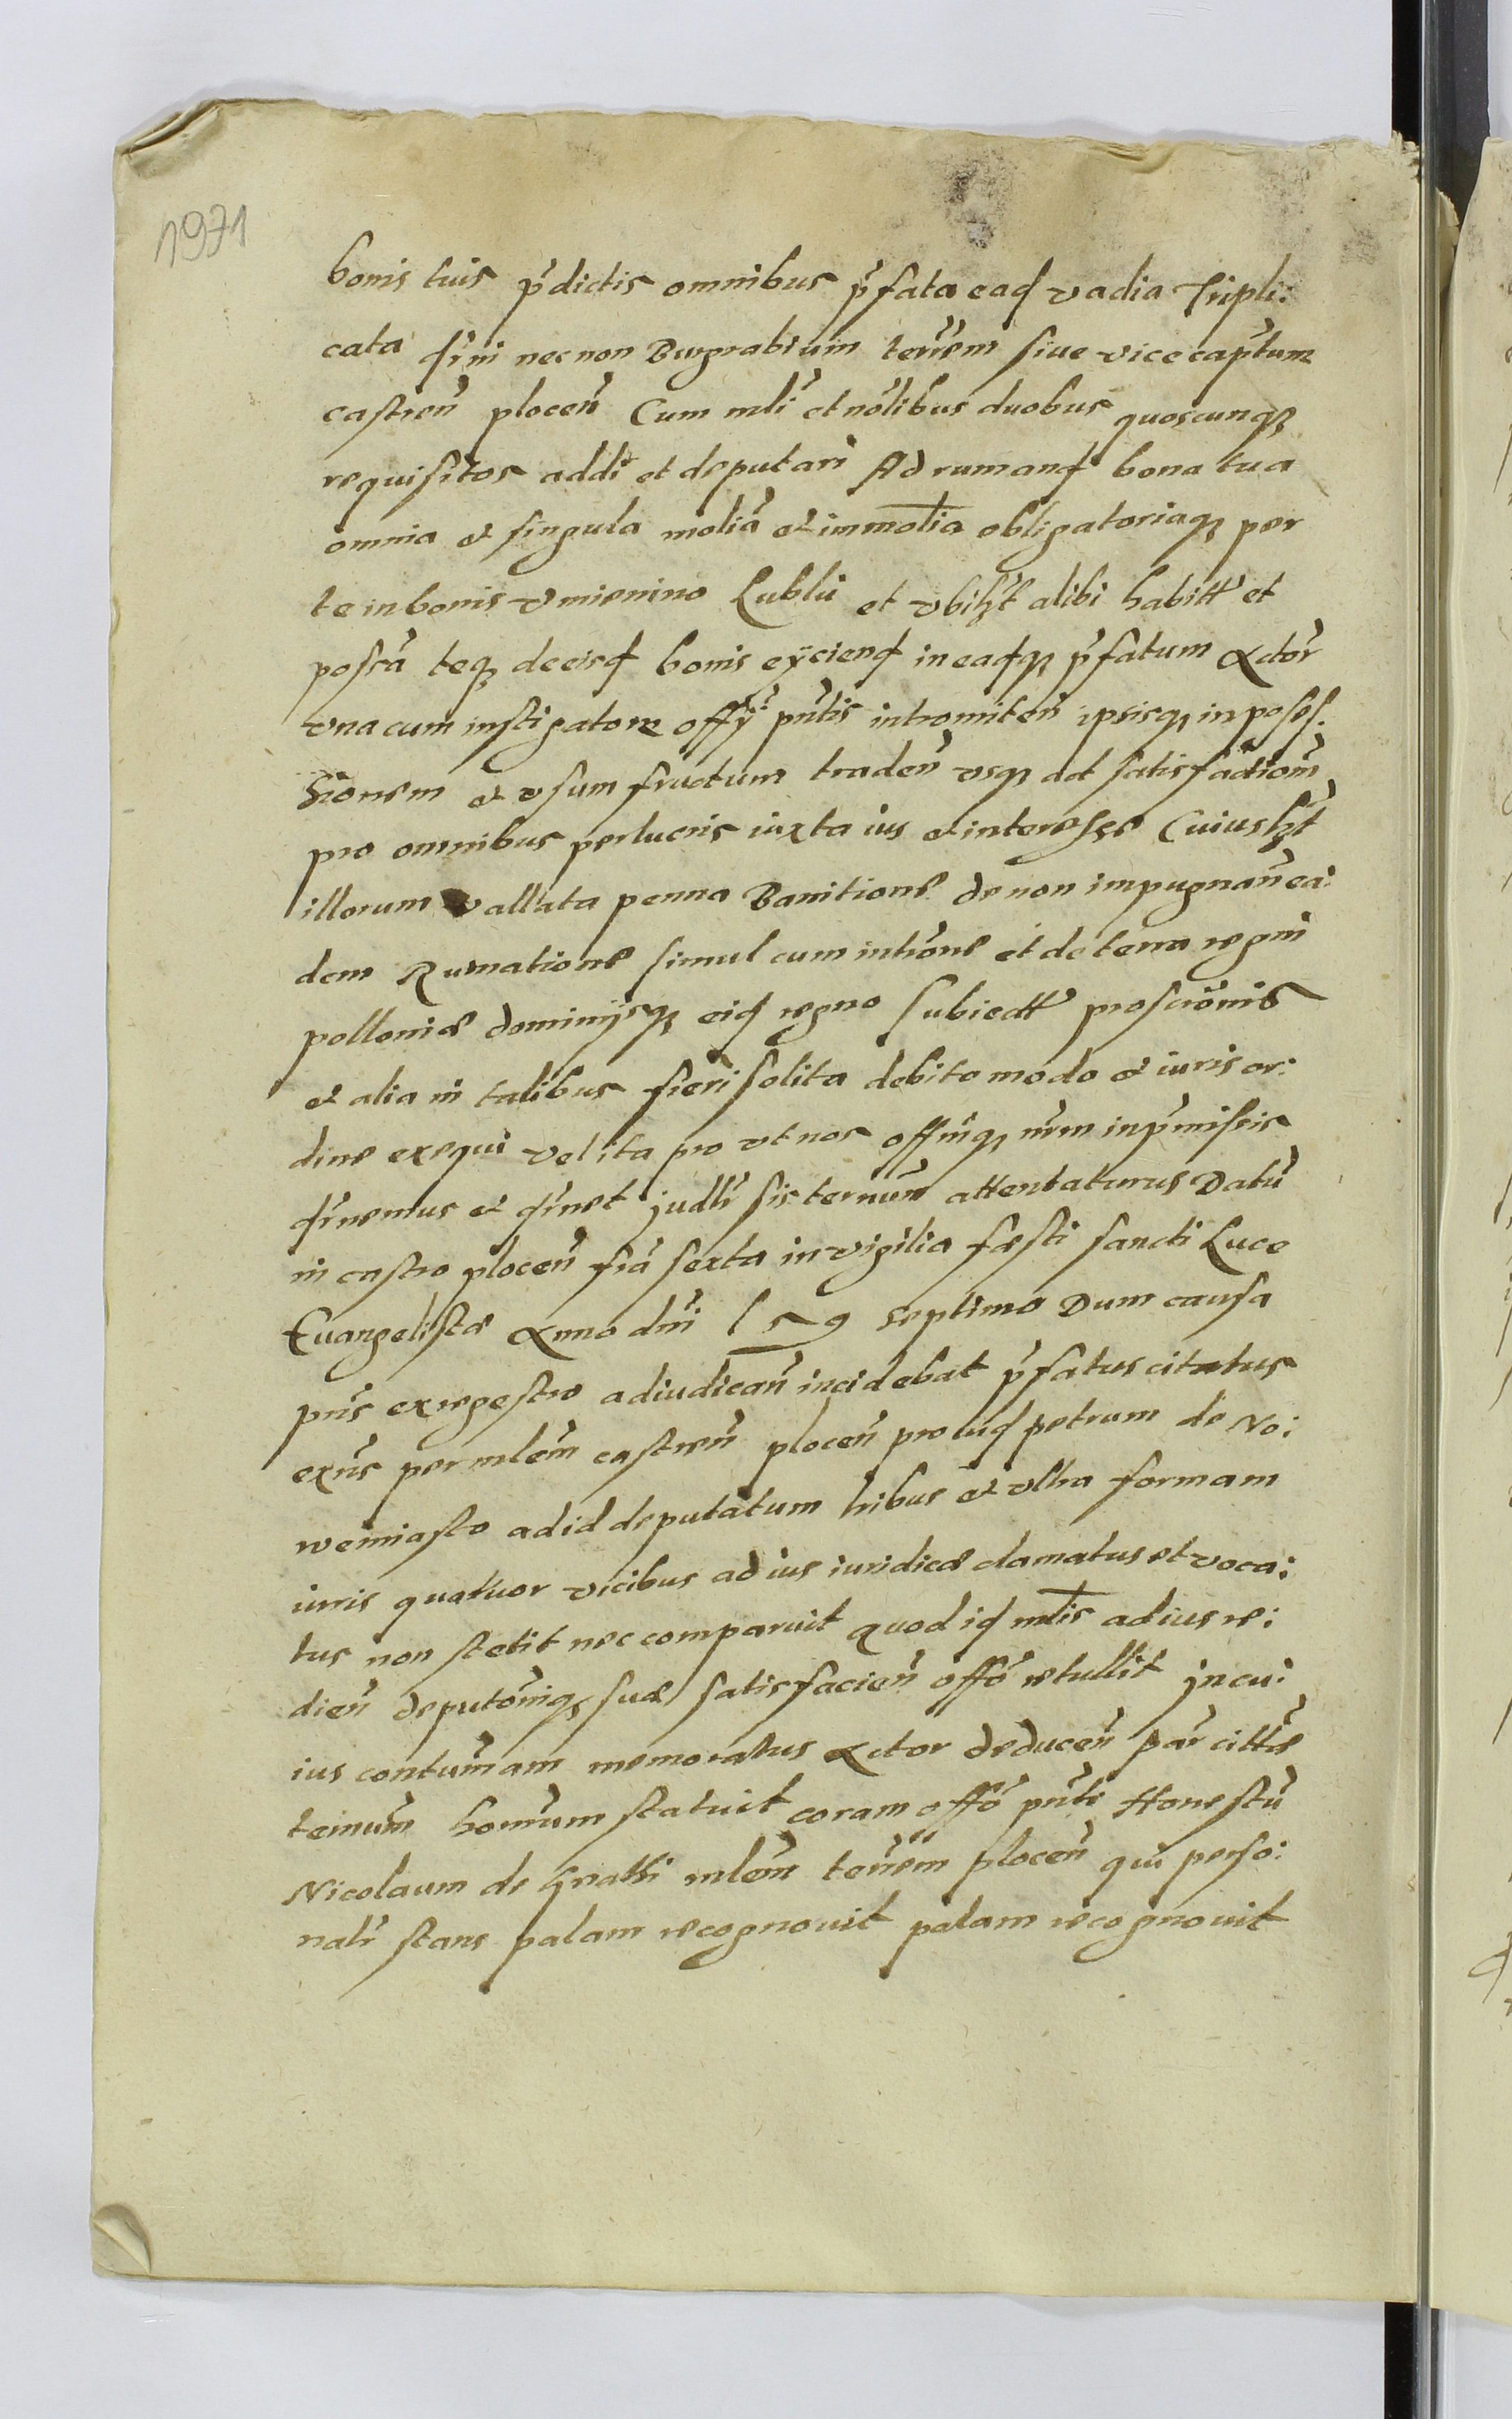 1971
bonis tuis p̃dictis omnibus p̃fata eaq vadia Tripli:
cata q̃ni nec non Burgrabium terr̃em siue vicecap̃tum
castreñ ploceñ Cum mlĩ et nõlibus duobus quoscunq
requisitos addi et deputari Ad rumanq bona tua
omnia et singula moliã et immolĩa obligatoriaq per
te in bonis vmienino Lublii et vbiłt alibi habitt et
possã teq de eisq bonis eÿcienq in eaqq p̃fatum Actor̃
vna cum instigatore offÿ pñtis intromiteñ ipsisq in posses.
sionem et vsum fructum tradeñ vsq ad satisfactioñ
pro omnibus perlucris iuxta ius et interesse Cuiusłt
illorum vallata penna Banitione de non impugnañ ea:
dem Rumatione simul cum intrõne et de terra regni
polloniæ dominijsq eiq regno subiectt proscriõnis
et alia in talibus fieri solita debito modo et iuris or:
dine exequi vel ita pro vt nos offinq nr̃m in p̃missis
q̃nemus et q̃net judlr̃ sis termũm attentaturus Datũ
in castro plocen fiã sexta in vigilia festi sancti Luce
Euangelistæ Anno dñi 1 5 9 septimo Dum causa
pñs ex regestro adiudicañ incidebat p̃fatus citatus
exñs per mlẽm castreñ ploceñ prouiq petrum de No:
wemiasto ad id deputatum tribus et vltra formam
iuris quatuor vicibus ad ius iuridicæ clamatus et voca:
tus non stetit nec comparuit quod iq mlĩs ad ius re:
dieñ deputõniq suæ satisfacieñ offõ retullit jn cu:
ius contum̃am memoratus Actor deduceñ par̃ cittæ
termũm homũm statuit coram offõ pñti Honestũ
Nicolaum de Gralki mlẽm terr̃em ploceñ qui perso:
nalr̃ stans palam recognouit palam recognouit